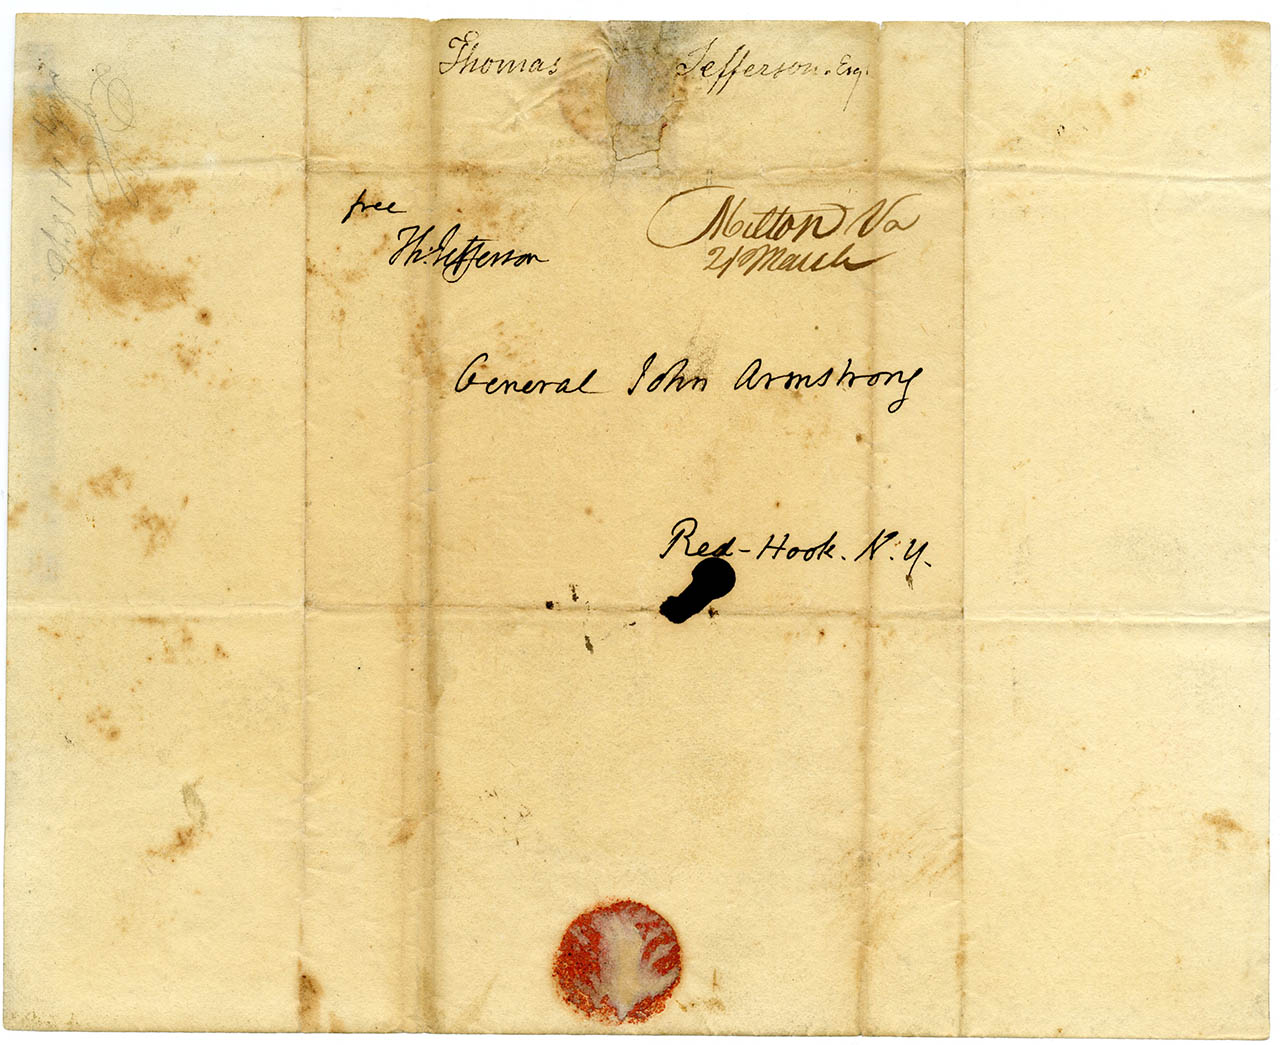 Thomas Jefferson. Esq.
free
Th: Jefferson
Milton Va
21 March
General John Armstrong
Red-Hook. N. Y.